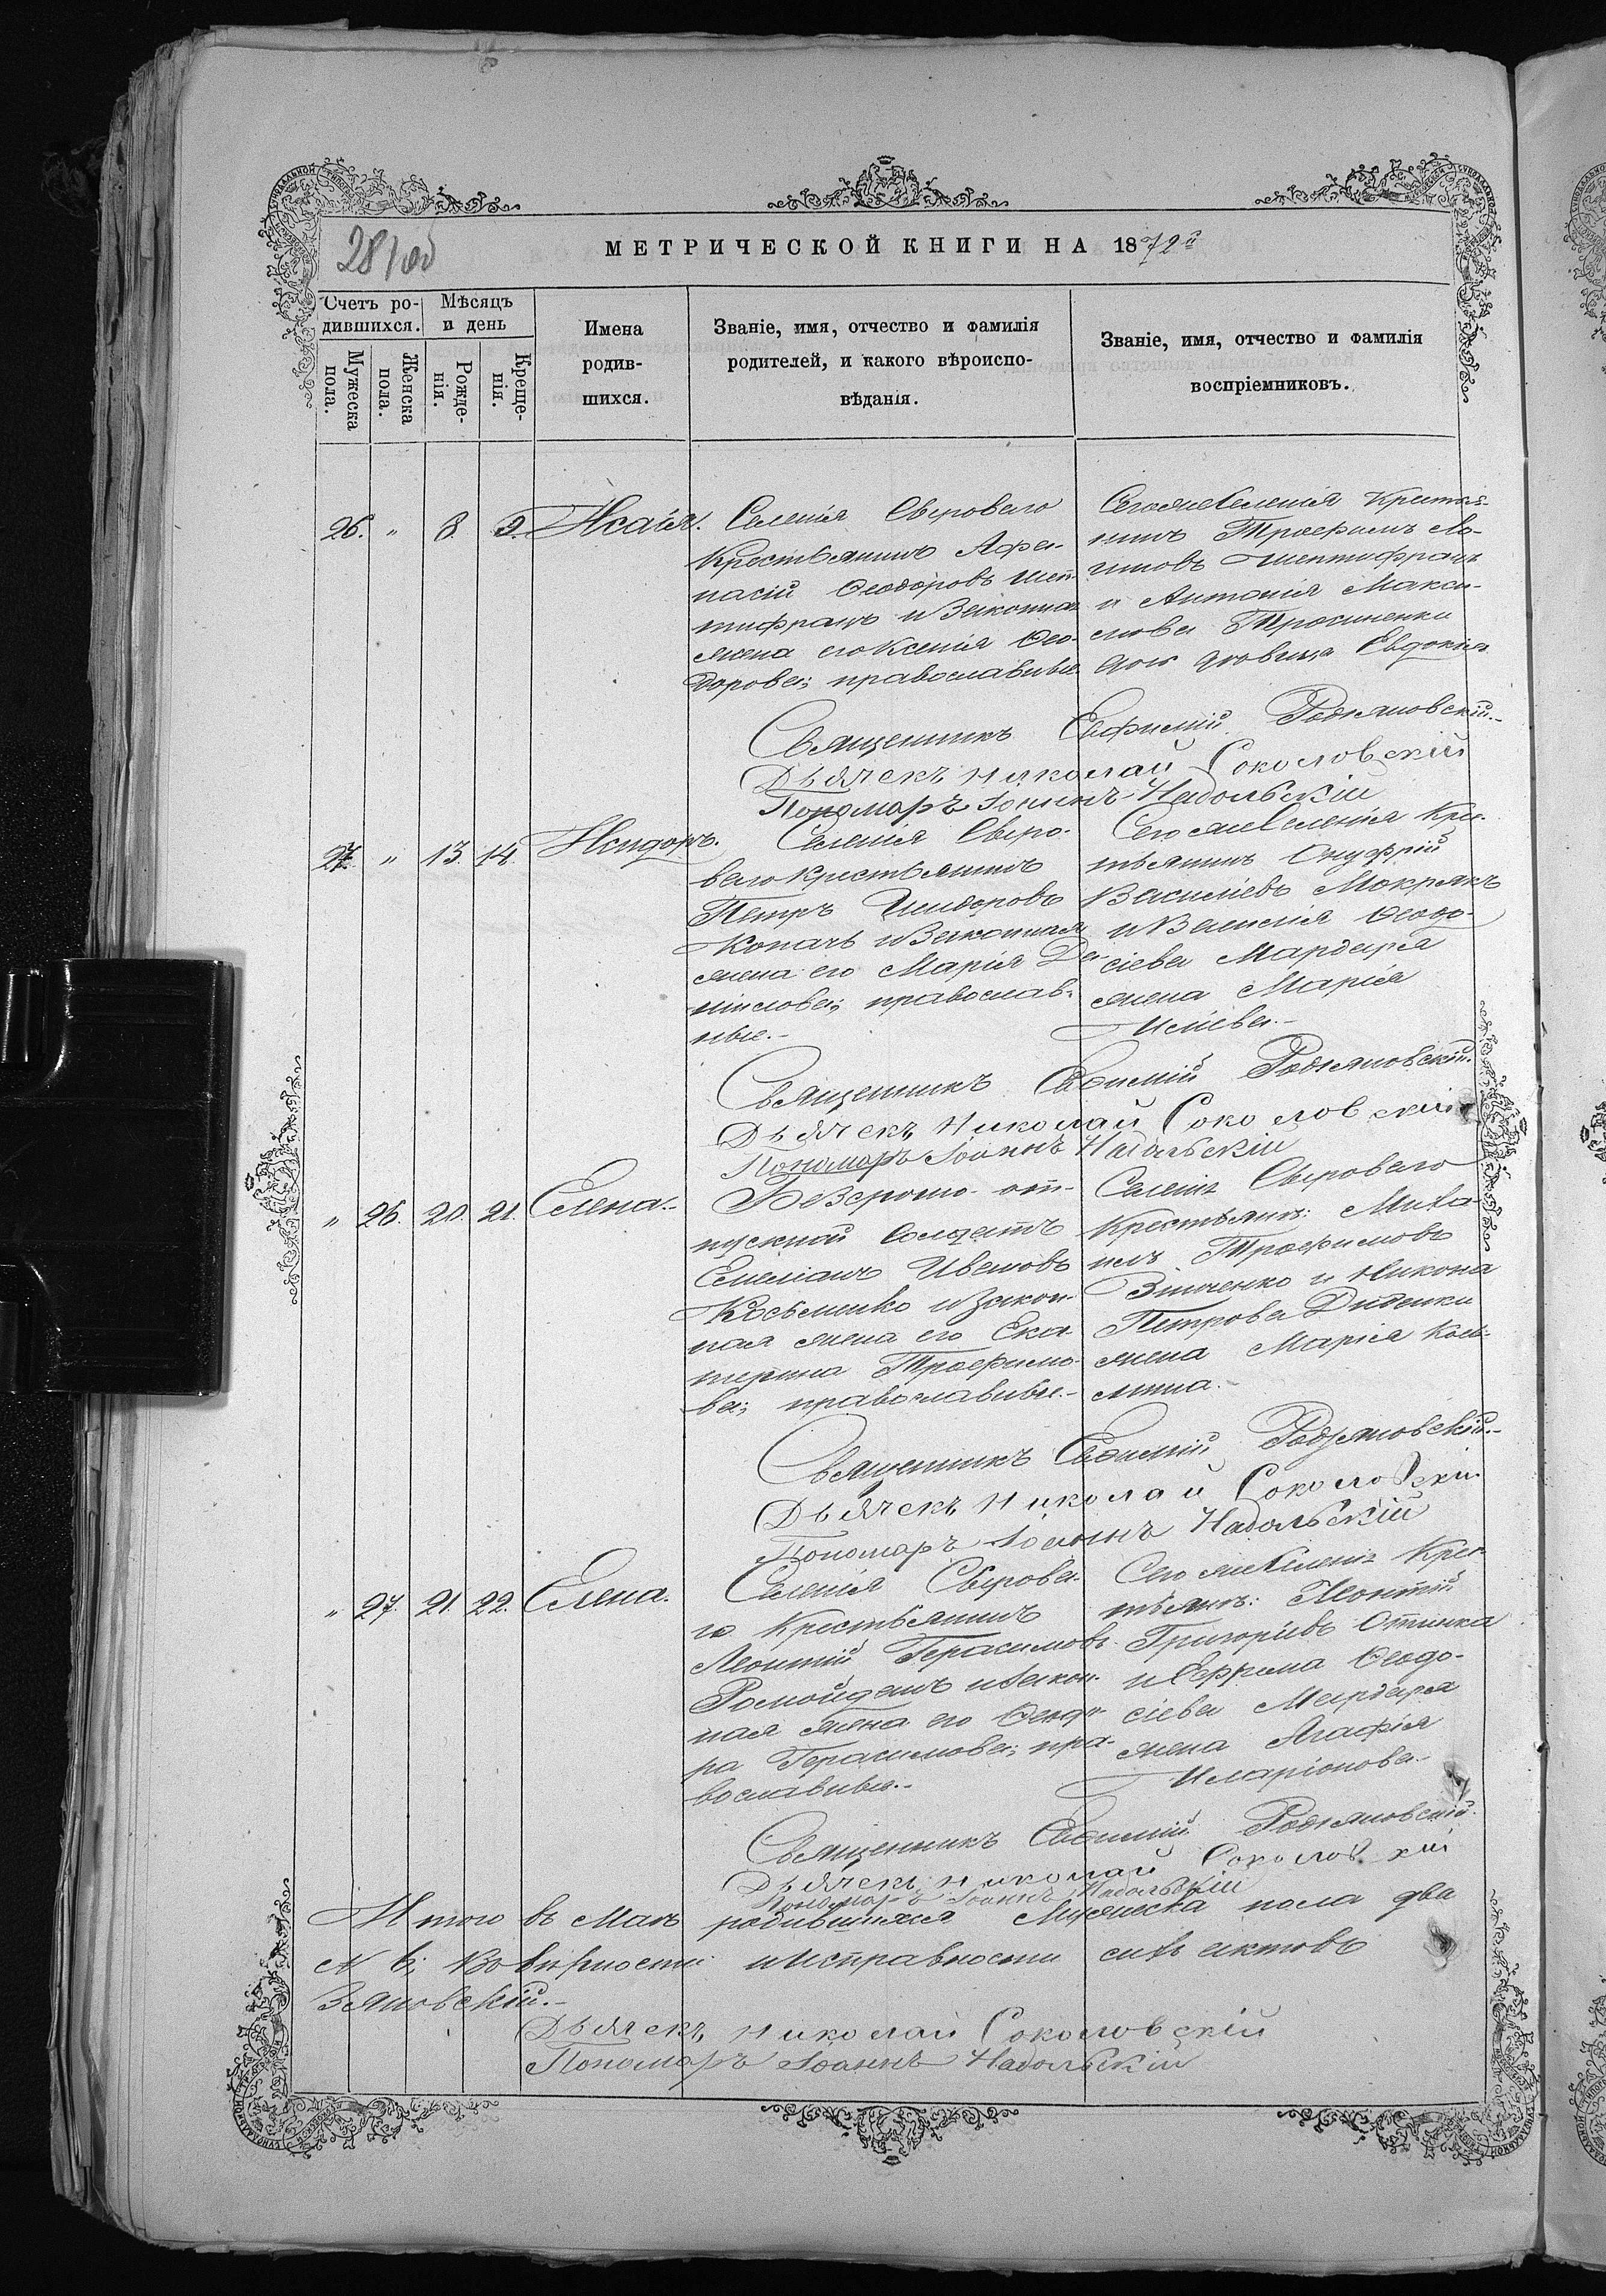 281об
МЕТРИЧЕСКОЙ КНИГИ НА 1872й
Счетъ ро-
дившихся.
Мѣсяцъ
и день
Мужеска
пола.
Женска
пола.
Рожде-
нія.
Креще-
нія.
Имена
родив-
шихся.
Званіе, имя, отчество и фамилія
родителей, и какого вѣроиспо-
вѣданія.
Званіе, имя, отчество и фамилія
воспріемниковъ.
26. " 8. 9. Исаія.
Селенія Сырового
Крестьянинъ Афа-
насій Ѳеодоровъ Шеп-
тифранъ и Законная
жена его Ксенія Ѳео-
дорова; православные.
Сегоже Селенія Крестья-
нинъ Трофимъ Ло-
гиновъ Шептифранъ
и Антонія Макси-
мова Трошненки
дочь дѣвица Евдокія
Священникъ Евфимій Родзяновскій.
Дьячекъ Николай Соколовскій
Пономаръ Іоаннъ Надольскій
27. " 13. 14. Исидоръ.
Селенія Сыро-
ваго Крестьянинъ
Петръ Исидоровъ
Копачъ и Законная
жена его Марія Да-
ніилова; православ-
ные.
Сегоже Селенія Крес-
тьянинъ Онуфрій
Василіевъ Мокрякъ
и Василія Ѳеодо-
сіева Мардаря
жена Марія
Иліева.
Священникъ Евѳимій Родзяновскій.
Дьячекъ Николай Соколовскій
Пономаръ Іоаннъ Надольскій
" 26. 20. 21. Елена.
Безсрочно-от-
пускной Солдатъ
Емеліанъ Ивановъ
Козьменко и Закон-
ная жена его Ека-
терина Трофимо-
ва; православные.
Селенія Сырового
Крестьянъ: Миха-
илъ Трофимовъ
Зинченко и Никона
Петрова Диденки
жена Марія Козь-
мина.
Священникъ Евѳимій Родзяновскій.
Дьячекъ Николай Соколовскій.
Пономаръ Іоаннъ Надольскій
" 27. 21. 22. Елена.
Селенія Сырова-
го Крестьянинъ
Леонтій Герасимовъ
Ромойданъ и Закон-
ная жена его Ѳеодо-
ра Герасимова; пра-
вославные.
Сегоже Селенія Крес-
тьянъ: Леонтій
Григоріевъ Отинка
и Ефрема Ѳеодо-
сіева Мардаря
жена Агафія
Иларіонова.
Священникъ Евѳимій Родзяновскій.
Дьячекъ Николай Соколовскій
Пономаръ Іоаннъ Надольскій
Итого въ маѣ родившихся Мужеска пола два
Во вѣрности и Исправности сихъ актовъ
зяновскій.
Дьячекъ Николай Соколовскій
Пономаръ Іоаннъ Надольскій